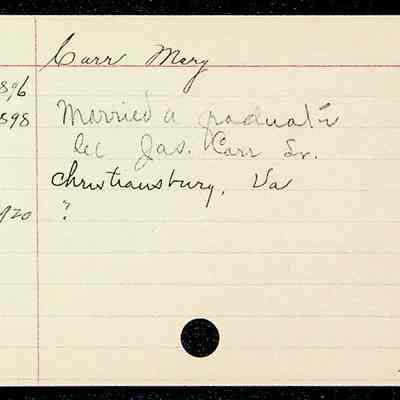 Carr Mary
Married a graduate
Jas. Carr Sr.
898 Christiansburg, Va
920 ?